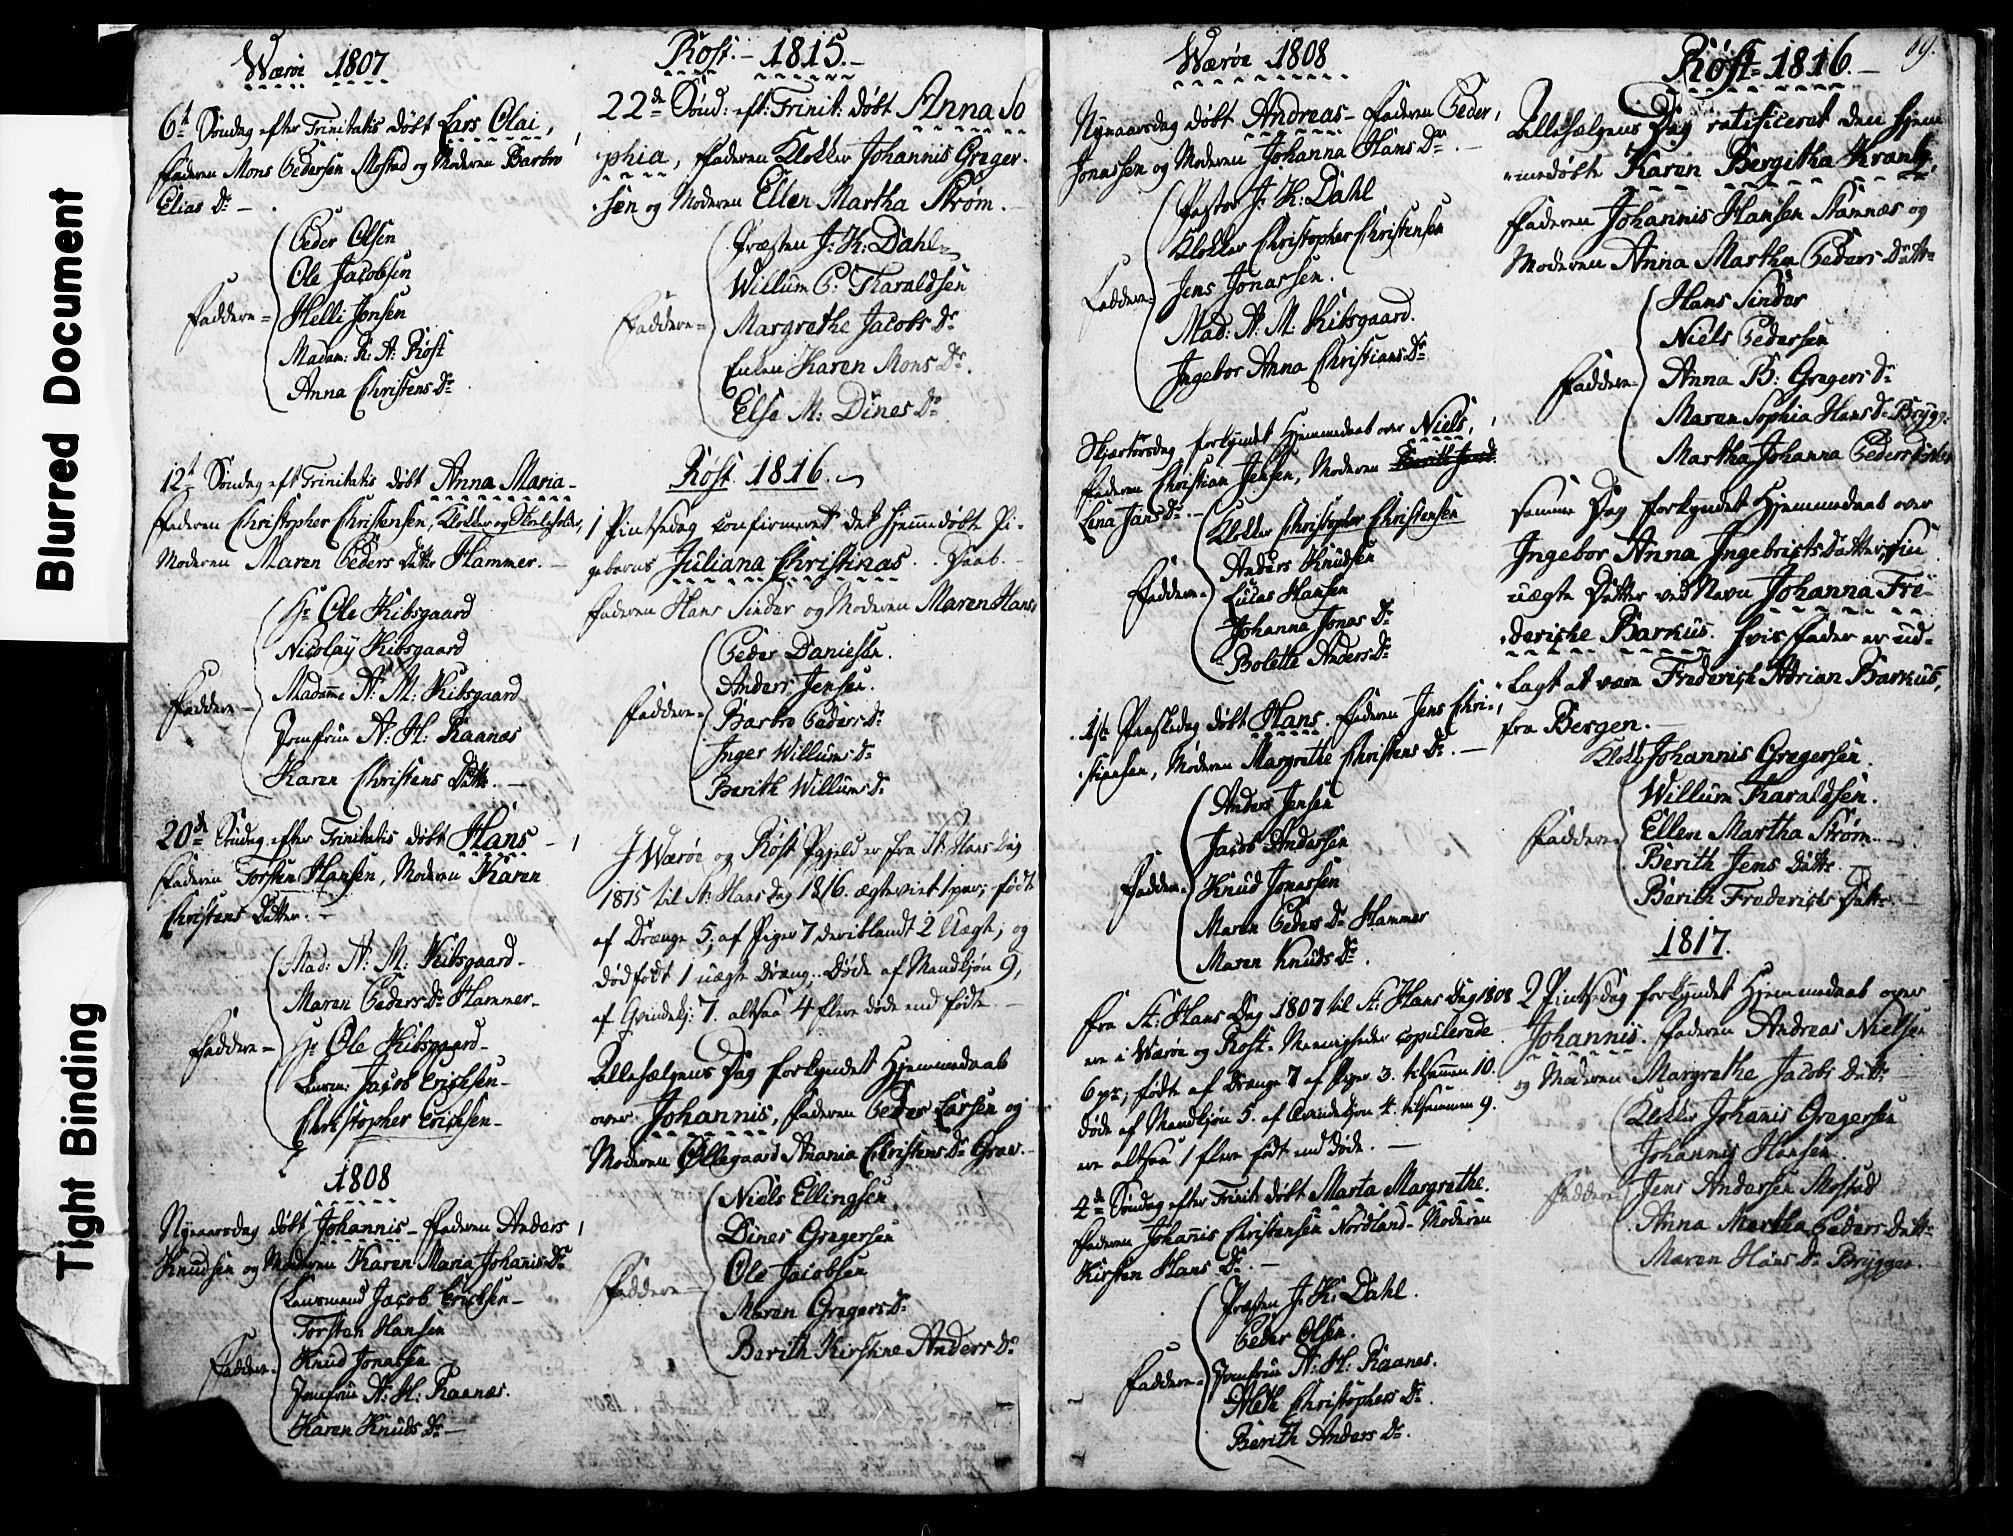 Blurred Document
Tight Binding
Wærøe 1807
6t Søndag efter Trinitatis døbt Lars Olai,
Faderen Mons Pedersen Mostad og Moderen Barbro
Elias Dr
Peder Olsen
Ole Jacobsen
Faddere = Helli Jonsen
Madam: K: A: Røst
Anna Christens Dr
12t Søndag eft Trinitatis døbt Anna Maria -
Faderen Christopher Christensen, Klokker og
Moderen Maren Peders Dattr Hammer. -
Hr Ole Kibsgaard
Nicolay Kibsgaard
Faddere - Madame A: M: Kibsgaard
Jomfrue A: H: Raanæs
Karen Christens Dattr. -
20de Søndag efter Trinitatis døbt Hans -
Faderen Torsten Hansen, Moderen Karen
Christens Datter. -
Mad: A: M: Kibsgaard -
Maren Peders Dr Hammer -
Faddere - Hr Ole Kibsgaard -
Lensm: Jacob Erichsen -
Christopher Erichsen -
1808
Nyaarsdag døbt Johannis - Faderen Anders
Knudsen og Moderen Karen Maria Johanis Dr
Lensmand Jacob Erichsen -
Torsten Hansen
Faddere - Knud Jonassen
Jomfrue A: H: Raanæs.
Karen Knuds Dr -
Røst. - 1815. -
22de Sønd: eft: Trinit: døbt Anna So
phia, Faderen Klokker Johannis Greger-
sen og Moderen Ellen Martha Strøm. -
Præsten J: K: Dahl
Willum P: Tharaldsen
Faddere = Margrethe Jacobs Dr
Enken Karen Mons Dr.
Else M: Dines Dr
Røst. 1816.
1 Pintsedag confirmeret det hjemmedøbte Pi-
gebarns Juliana Christinas. Daab. -
Faderen Hans Sindar og Moderen Maren Hans
Peder Danielsen.
Anders Jensen.
Faddere = Barbro Peders Dr
Inger Willums Dr
Berith Willums Dr
I Wærøe og Røst Pgjeld er fra St Hans Dag
1815 til St: Hans Dag 1816. ægteviet 1 par; fødte
af Drænge 5; af Piger 7 deriblandt 2 Uægte; og
dødfødt 1 uægte Dræng; Døde af Mandkjøn 9,
af Qvindekj: 7. altsaa 4 flere døde end fødte. -
Allehælgens Dag forkyndet Hjemmedaab
over Johannis, Faderen Peder Larsen og
Moderen Øllegaard Anania Christens Dr Grav. -
Niels Ellingsen
Dines Gregersen
Faddere - Ole Jacobsen
Maren Gregers Dr
Berith Kirstine Anders Dr
Wærøe 1808
Nyeaarsdag døbt Andreas - Faderen Peder
Jonassen og Moderen Johanna Hans Dr. -
Pastor J: K: Dahl
Klokker Christopher Christensen
Faddere = Jens Jonassen.
Mad: A: M: Kibsgaard.
Ingebor Anna Christians Dr
Skjærtorsdag forkyndet Hjemmedaab over Niels,
Faderen Christian Jensen, Moderen
Lena Jans Dr. -
Klokker Christopher Christensen
Anders Knudsen
Faddere - Lucas Hansen
Johanna Jonas Dr
Bolette Anders Dr
1ste Paaskedag døbt Hans. Faderen Jens Chri-
stiansen, Moderen Margrethe Christens Dr. -
Anders Jensen
Jacob Andersen
Faddere - Knud Jonassen
Maren Peders Dr Hammer
Maren Knuds Dr.
Fra St: Hans Dag 1807 til St. Hans Dag 1808
ere i Wærøe og Røst. Menigheder copulerede
6 pr, fødte af Drænge 7 af Piger 3. tilsammen 10.
døde af Mandkjøn 5. af Qvindekjøn 4. tilsammen 9.
ere altsaa 1 flere født end døde. -
4de Søndag efter Trinit døbt Marta Margrethe.
Faderen Johanis Christensen Nordland - Moderen
Kirsten Hans Dr. -
Præsten J: K: Dahl.
Peder Olsen.
Faddere - Jomfrue A: H: Raanes.
Aleth Christophers Dr.
Berith Anders Dr.
69.
Røst = 1816. -
Allehælgens Dag ratificeret den hjem
-medøbte Karen Bergitha Krantz,
Faderen Johannis Hansen Stamnæs og
Moderen Anna Martha Peders Dattr
Hans Sindar
Niels Pedersen
Faddere - Anna B: Gregers Dr
Maren Sophia Hans Dr Brygg:
Martha Johanna Peders Dattr
Samme Dag forkyndet Hjemmedaab over
Ingebor Anna Ingebrigts Datters
uægte Datter ved Navn Johanna Fre-
deriche Barkus. hvis Fader er ud-
lagt at være Frederich Adrian Barkus,
fra Bergen. -
Klokk Johannis Gregersen.
Willum Tharaldsen.
Faddere - Ellen Martha Strøm
Berith Jens Dattr.
Berith Frederichs Dattr. -
1817.
2 Pintsedag forkyndet Hjemmedaab over
Johannis. Faderen Andreas Nielsen
og Moderen Margrethe Jacobs Dattr
Klokker Johanis Gregersen
Johannis Hansen.
Faddere - Jens Andersen Mostad
Anna Martha Peders Dattr
Maren Hans Dr Brygger.